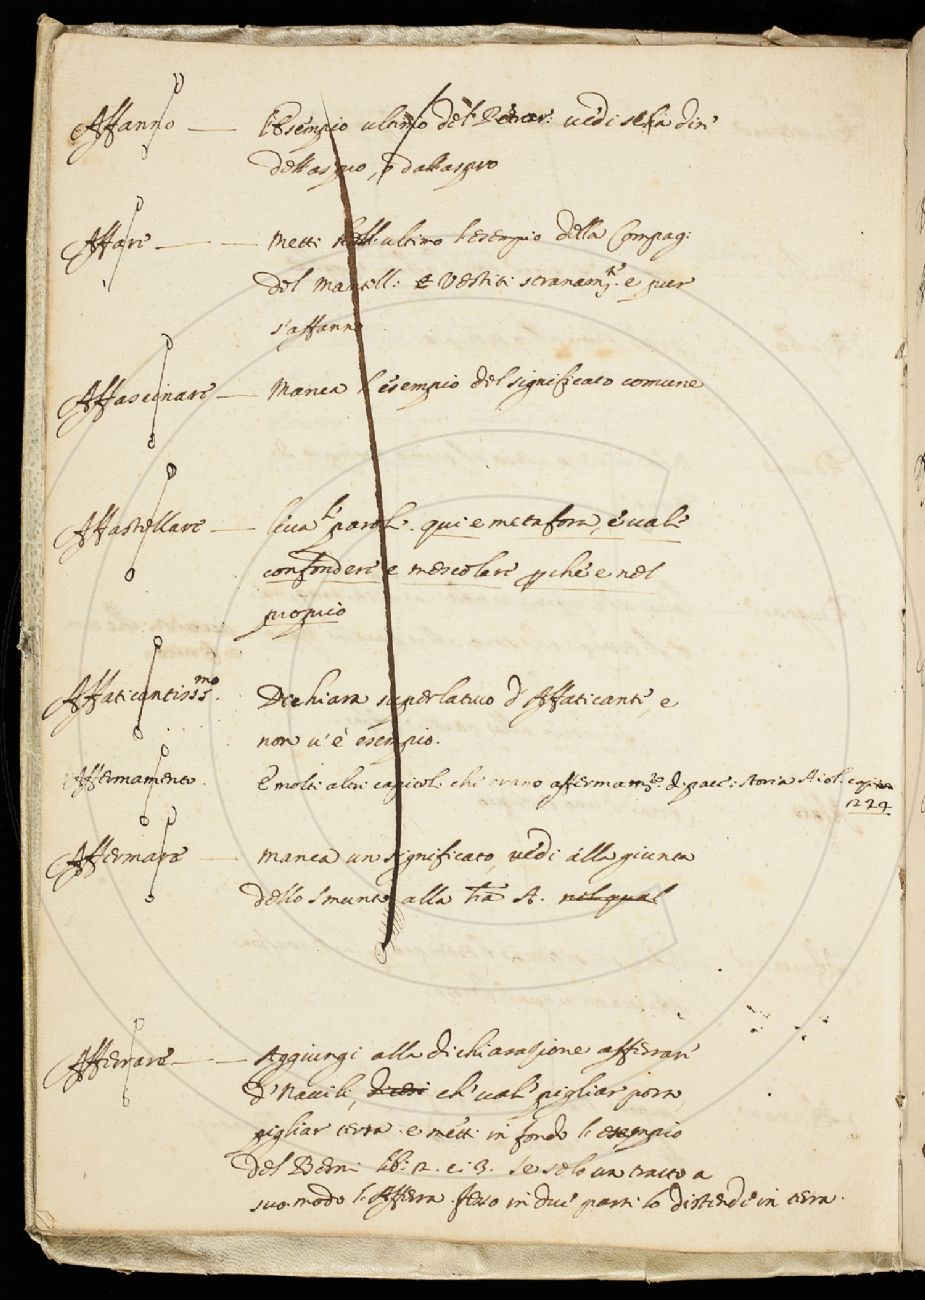 Affanno — l'esempio ultimo del Petrar. vedi se ha dir'
dell'aspro, o dall'aspro
Affare — Metti nell'ultimo l'esempio della Compag:
del Mantell: E vestiti stranam.te e par
s'affanno
Affascinare — Manca l'esempio del significato comune
Affastellare — lieva le parole. qui e metafora, e vale
confondere e mescolare perche e nel
proprio
Affaticantiss.mo Dichiara superlativo d'Affaticante, e
non v'è esempio.
Affermamento. E molti altri capitoli che erano affermam.to di pace: storia Aiol. capit.
1224
Affermare — Manca un significato, vedi alla giunta
dello Smunto alla tra A. nel qual
Afferrare — Aggiungi alla dichiarazione afferrare
d'Navili, che vale pigliar porto,
pigliar terra e metti in fondo l'esempio
del Berni lib: 2. c: 3. Se solo un tratto a
suo modo l'Afferra fesso in due parti lo distende in terra.